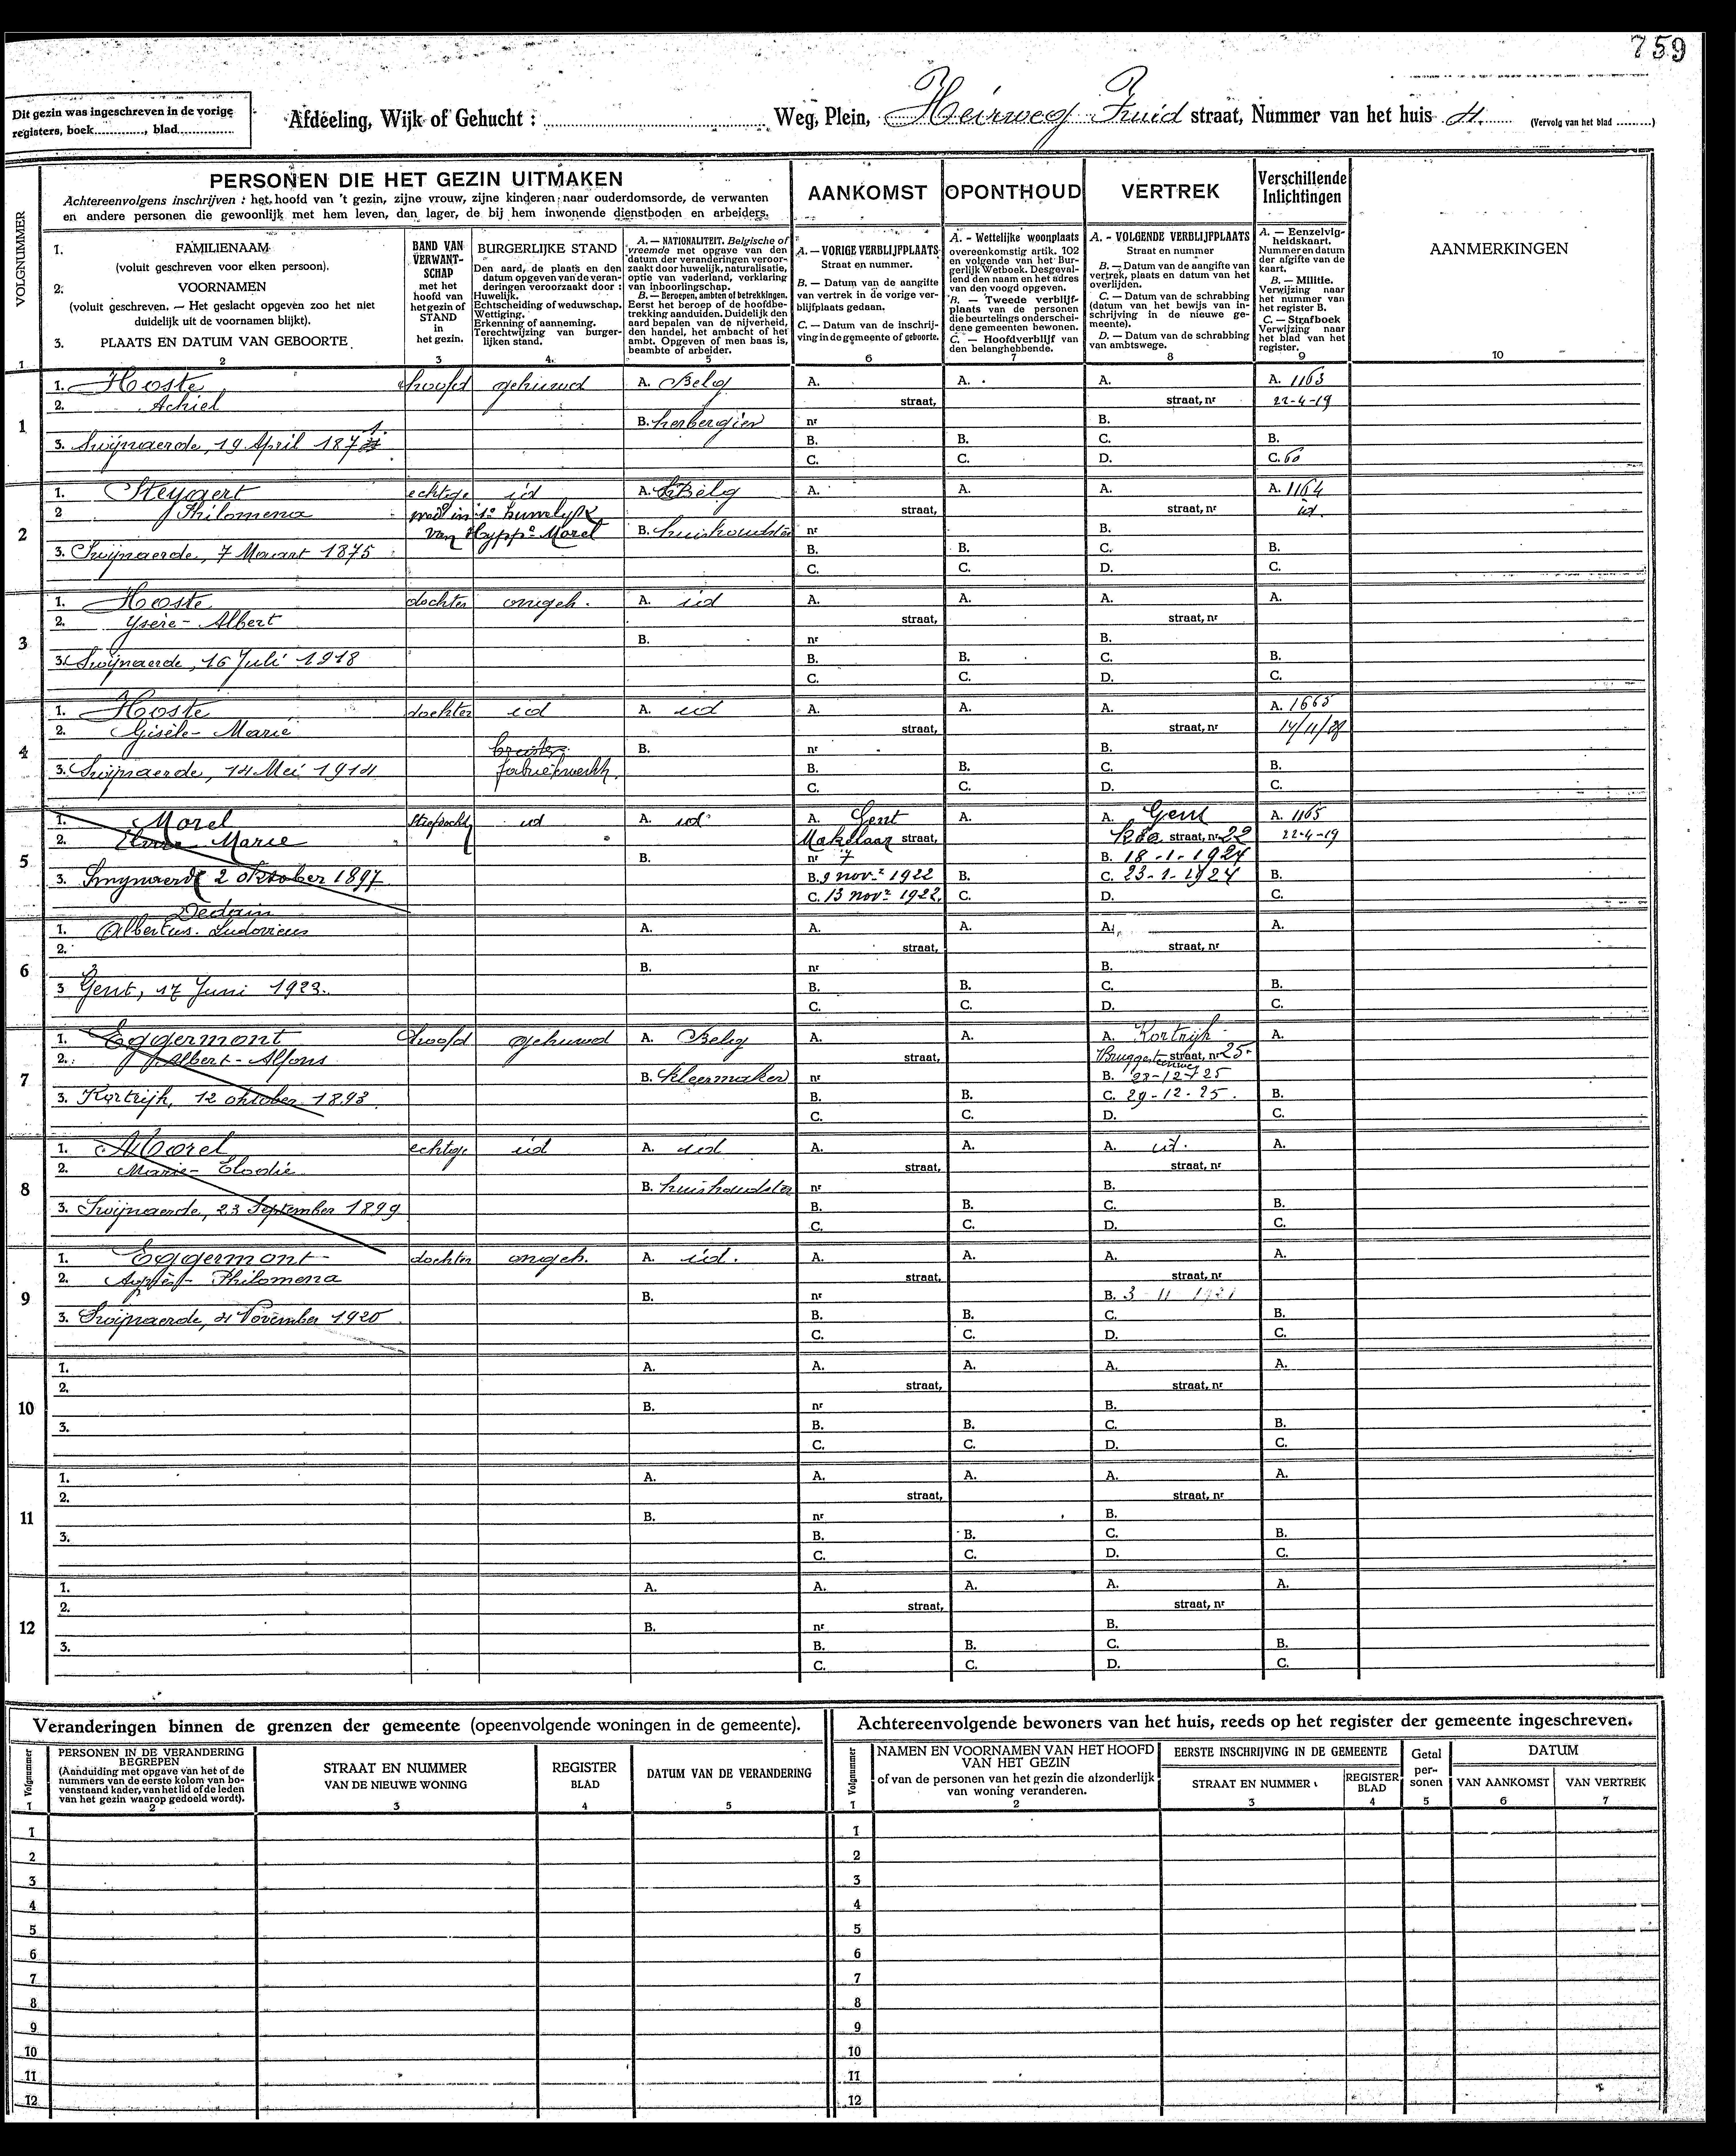 759
Dit gezin was ingeschreven in de vorige
registers, boek............, blad..............
Afdeeling, Wijk of Gehucht : Weg, Plein, Heirweg Zuid straat, Nummer van het huis 4. (Vervolg van het blad .........)
VOLGNUMMER
1
PERSONEN DIE HET GEZIN UITMAKEN
Achtereenvolgens inschrijven : het hoofd van 't gezin, zijne vrouw, zijne kinderen naar ouderdomsorde, de verwanten
en andere personen die gewoonlijk met hem leven, dan lager, de bij hem inwonende dienstboden en arbeiders.
1. FAMILIENAAM
(voluit geschreven voor elken persoon).
2. VOORNAMEN
(voluit geschreven. — Het geslacht opgeven zoo het niet
duidelijk uit de voornamen blijkt).
3. PLAATS EN DATUM VAN GEBOORTE
2
BAND VAN
VERWANT-
SCHAP
met het
hoofd van
het gezin of
STAND
in
het gezin.
3
BURGERLIJKE STAND
Den aard, de plaats en den
datum opgeven van de veran-
deringen veroorzaakt door :
Huwelijk.
Echtscheiding of weduwschap.
Wettiging.
Erkenning of aanneming.
Terechtwijzing van burger-
lijken stand.
4.
A. — NATIONALITEIT. Belgische of
vreemde met opgave van den
datum der veranderingen veroor-
zaakt door huwelijk, naturalisatie,
optie van vaderland, verklaring
van inboorlingschap.
B. — Beroepen, ambten of betrekkingen.
Eerst het beroep of de hoofdbe-
trekking aanduiden. Duidelijk den
aard bepalen van de nijverheid,
den handel, het ambacht of het
ambt. Opgeven of men baas is,
beambte of arbeider.
5
AANKOMST
A. — VORIGE VERBLIJFPLAATS
Straat en nummer.
B. — Datum van de aangifte
van vertrek in de vorige ver-
blijfplaats gedaan.
C. — Datum van de inschrij-
ving in de gemeente of geboorte.
6
OPONTHOUD
A. - Wettelijke woonplaats
overeenkomstig artik. 102
en volgende van het Bur-
gerlijk Wetboek. Desgeval-
lend den naam en het adres
van den voogd opgeven.
B. — Tweede verblijf-
plaats van de personen
die beurtelings onderschei-
dene gemeenten bewonen.
C. — Hoofdverblijf van
den belanghebbende.
7
VERTREK
A. - VOLGENDE VERBLIJFPLAATS
Straat en nummer
B. — Datum van de aangifte van
vertrek, plaats en datum van het
overlijden.
C. — Datum van de schrabbing
(datum van het bewijs van in-
schrijving in de nieuwe ge-
meente).
D. — Datum van de schrabbing
van ambtswege.
8
Verschillende
Inlichtingen
A. — Eenzelvig-
heidskaart.
Nummer en datum
der afgifte van de
kaart.
B. — Militie.
Verwijzing naar
het nummer van
het register B.
C. — Strafboek
Verwijzing naar
het blad van het
register.
9
AANMERKINGEN
10
1
1. Hoste hoofd gehuwd A. Belg A. A. A. A. 1163
2. Achiel straat, straat, nr 22-4-19
B. herbergier nr B.
3. Swijnaerde, 19 April 1871. B. B. C. B.
C. C. D. C. 60
2
1. Steyaert echtge id A. Belg A. A. A. A. 1164
2 Philomena wed in 1e huwelijk straat, straat, nr id.
van Hyppe Morel B. huishoudster nr B.
3. Swijnaerde, 7 Maart 1875 B. B. C. B.
C. C. D. C.
3
1. Hoste dochter ongeh. A. id A. A. A. A.
2. Ysère-Albert straat, straat, nr
B. nr B.
3. Swijnaerde, 16 Juli 1918 B. B. C. B.
C. C. D. C.
4
1. Hoste dochter id A. id A. A. A. A. 1665
2. Gisèle-Marie straat, straat, nr 14/11/29
B. nr B.
3. Swijnaerde, 14 Mei 1914 fabriekwerkh. B. B. C. B.
C. C. D. C.
5
1. Morel Stiefdocht id A. id A. Gent A. A. Gent A. 1165
2. Marie Makelaar straat, straat, nr 22 22-4-19
B. nr 7 B. 18-1-1924
3. Swynaerde 2 oktober 1897 B. 9 nov. 1922 B. C. 23-1-1924 B.
C. 13 nov. 1922. C. D. C.
6
Dedain
1. Albertus. Ludovicus A. A. A. A. A.
2. straat, straat, nr
B. nr B.
3 Gent, 17 Juni 1923. B. B. C. B.
C. C. D. C.
7
1. Eggermont hoofd gehuwd A. Belg A. A. A. Kortrijk A.
2. Albert-Alfons straat, Brugge steenweg straat, nr 25.
B. kleermaker nr B. 23-12-25
3. Kortrijk, 12 oktober 1893. B. B. C. 29-12-25. B.
C. C. D. C.
8
1. Morel echtge id A. id A. A. A. id. A.
2. Marie-Elodie straat, straat, nr
B. huishoudster nr B.
3. Swijnaerde, 23 September 1899 B. B. C. B.
C. C. D. C.
9
1. Eggermont dochter ongeh. A. id. A. A. A. A.
2. Agnès-Philomena straat, straat, nr
B. nr B. 3 11 1921
3. Swijnaerde, 4 November 1920 B. B. C. B.
C. C. D. C.
10
1. A. A. A. A. A.
2. straat, straat, nr
B. nr B.
3. B. B. C. B.
C. C. D. C.
11
1. A. A. A. A. A.
2. straat, straat, nr
B. nr B.
3. B. B. C. B.
C. C. D. C.
12
1. A. A. A. A. A.
2. straat, straat, nr
B. nr B.
3. B. B. C. B.
C. C. D. C.
Veranderingen binnen de grenzen der gemeente (opeenvolgende woningen in de gemeente).
Volgnummer
1
PERSONEN IN DE VERANDERING
BEGREPEN
(Aanduiding met opgave van het of de
nummers van de eerste kolom van bo-
venstaand kader, van het lid of de leden
van het gezin waarop gedoeld wordt).
2
STRAAT EN NUMMER
VAN DE NIEUWE WONING
3
REGISTER
BLAD
4
DATUM VAN DE VERANDERING
5
1
2
3
4
5
6
7
8
9
10
11
12
Achtereenvolgende bewoners van het huis, reeds op het register der gemeente ingeschreven.
Volgnummer
1
NAMEN EN VOORNAMEN VAN HET HOOFD
VAN HET GEZIN
of van de personen van het gezin die afzonderlijk
van woning veranderen.
2
EERSTE INSCHRIJVING IN DE GEMEENTE
STRAAT EN NUMMER
3
REGISTER
BLAD
4
Getal
per-
sonen
5
DATUM
VAN AANKOMST
6
VAN VERTREK
7
1
2
3
4
5
6
7
8
9
10
11
12